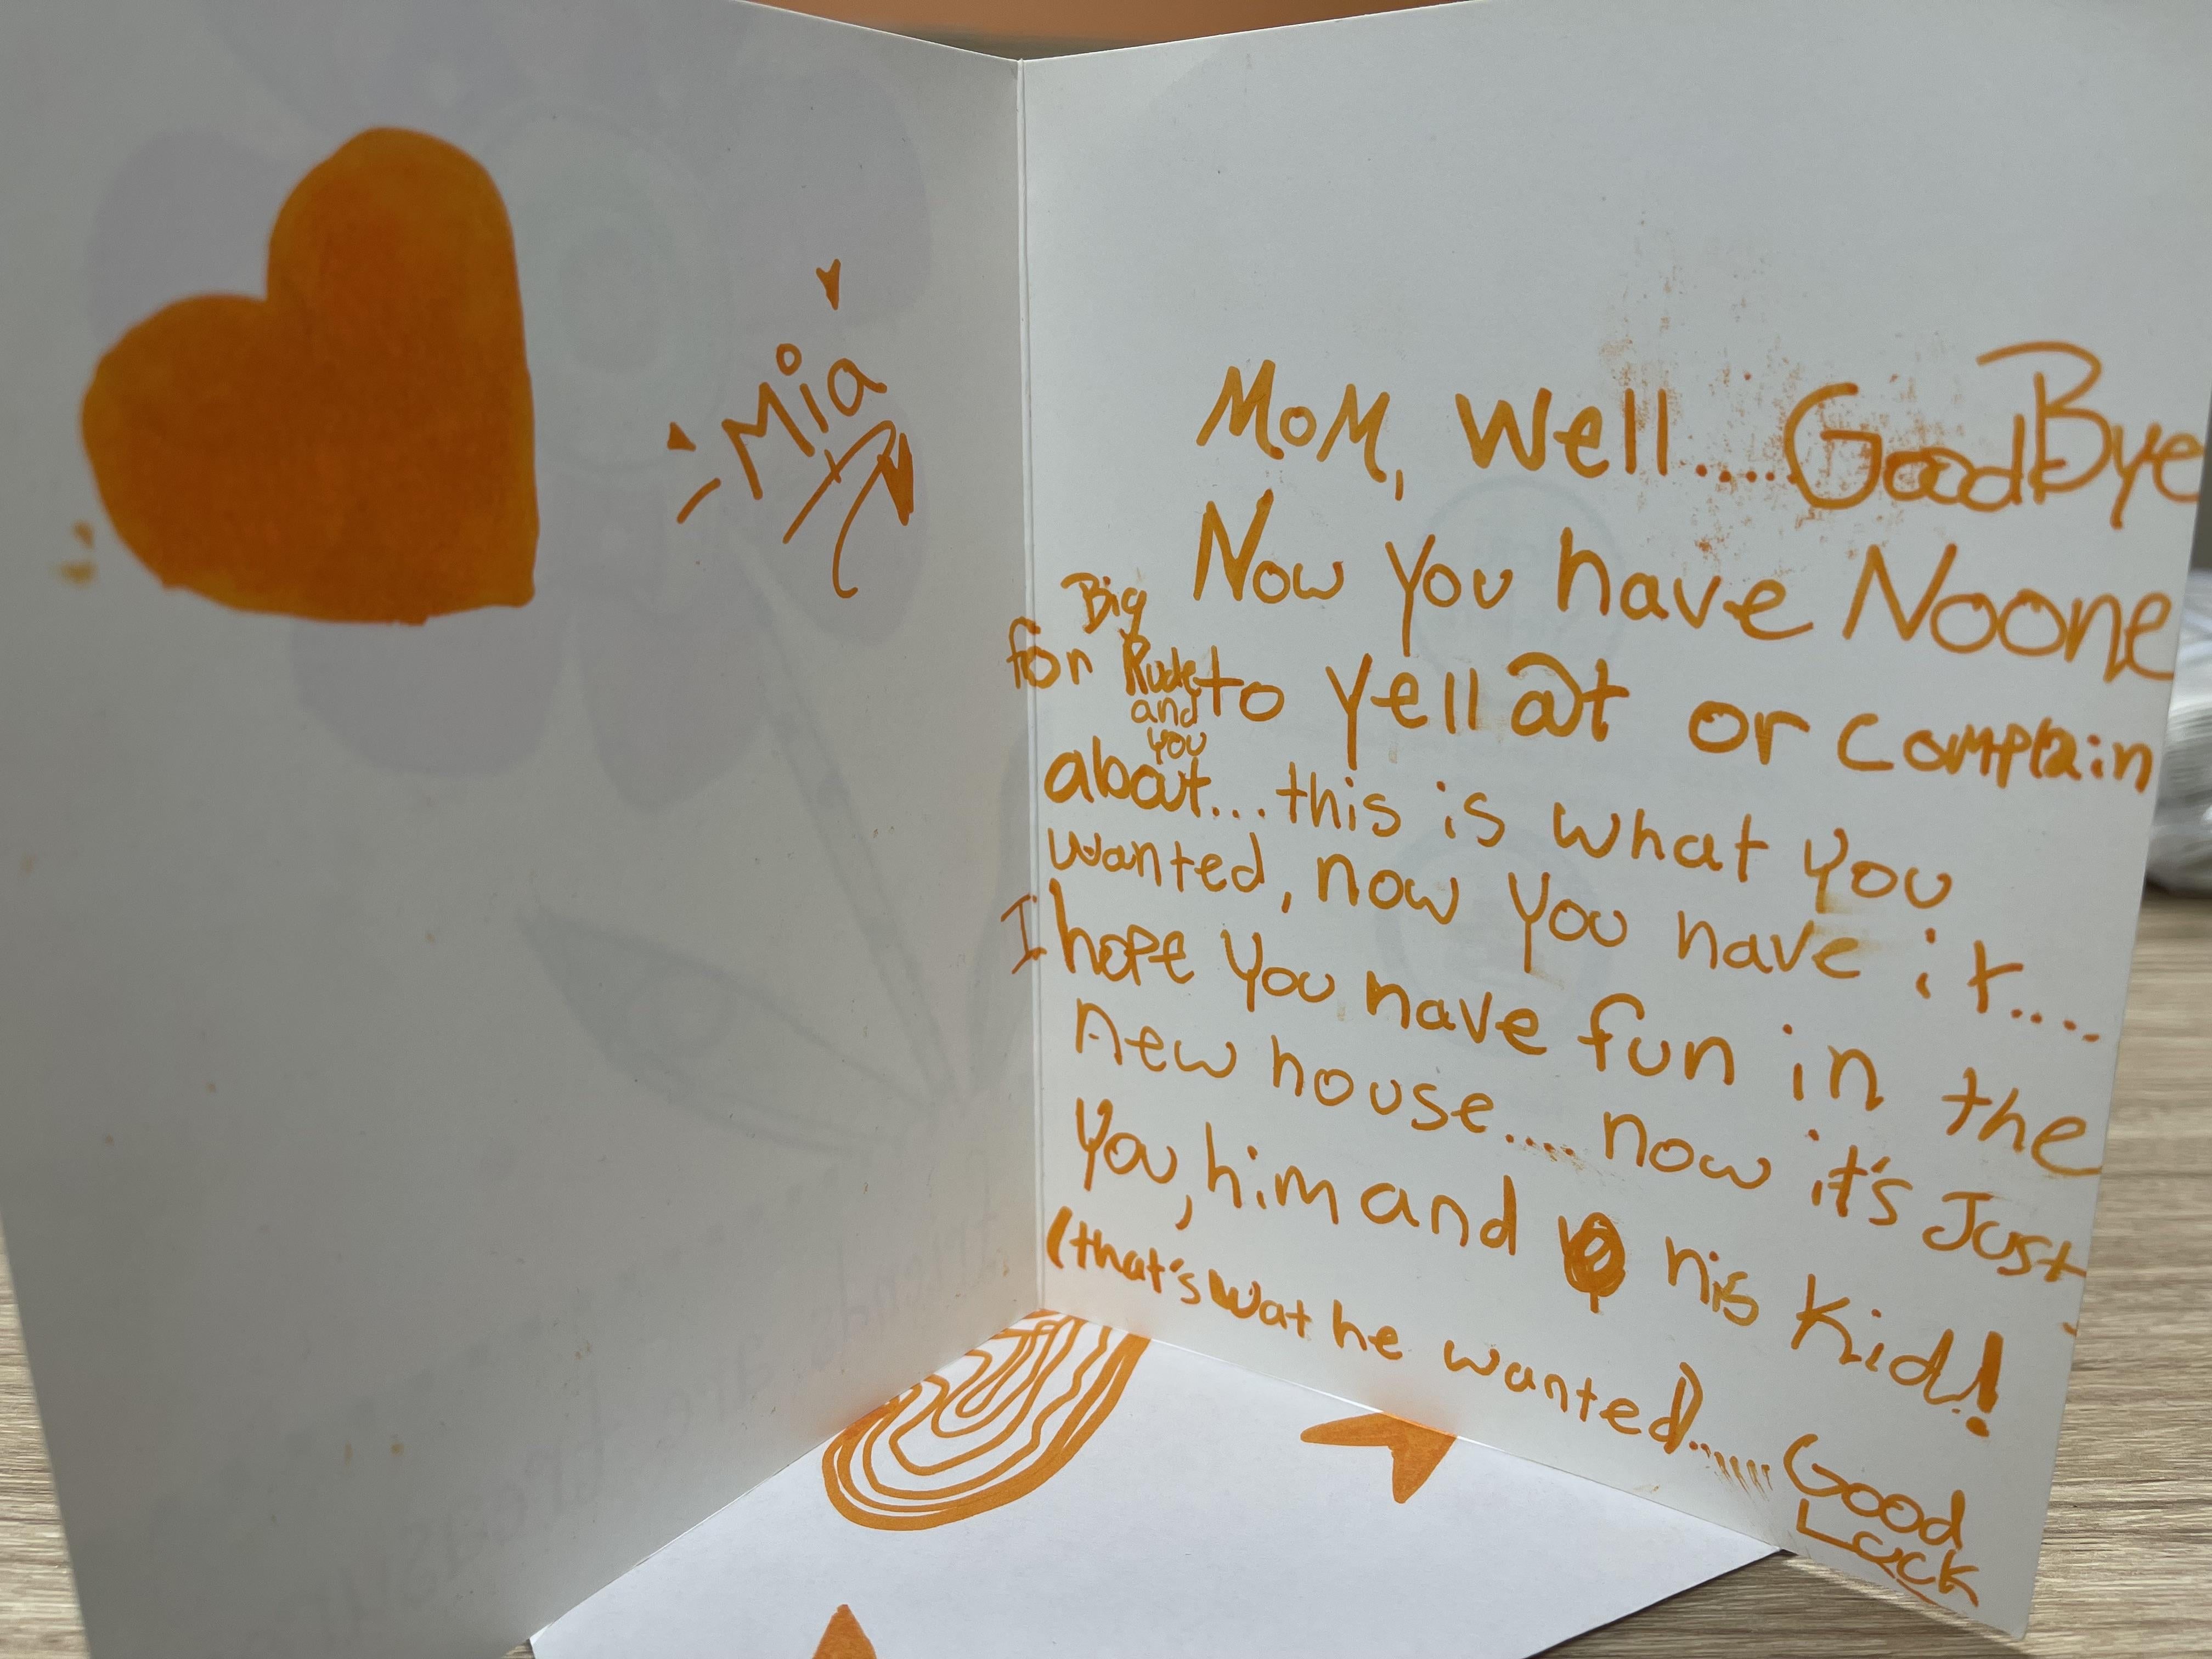 Mia
MoM, Well....GoodBye
Now You have Noone
for Big Rude and you to Yell at or complain
about...this is what you
wanted, now you have it....
I hope you have fun in the
new house.... now it's Just
You, him and his kid!
(that's wat he wanted)......
Good
Luck